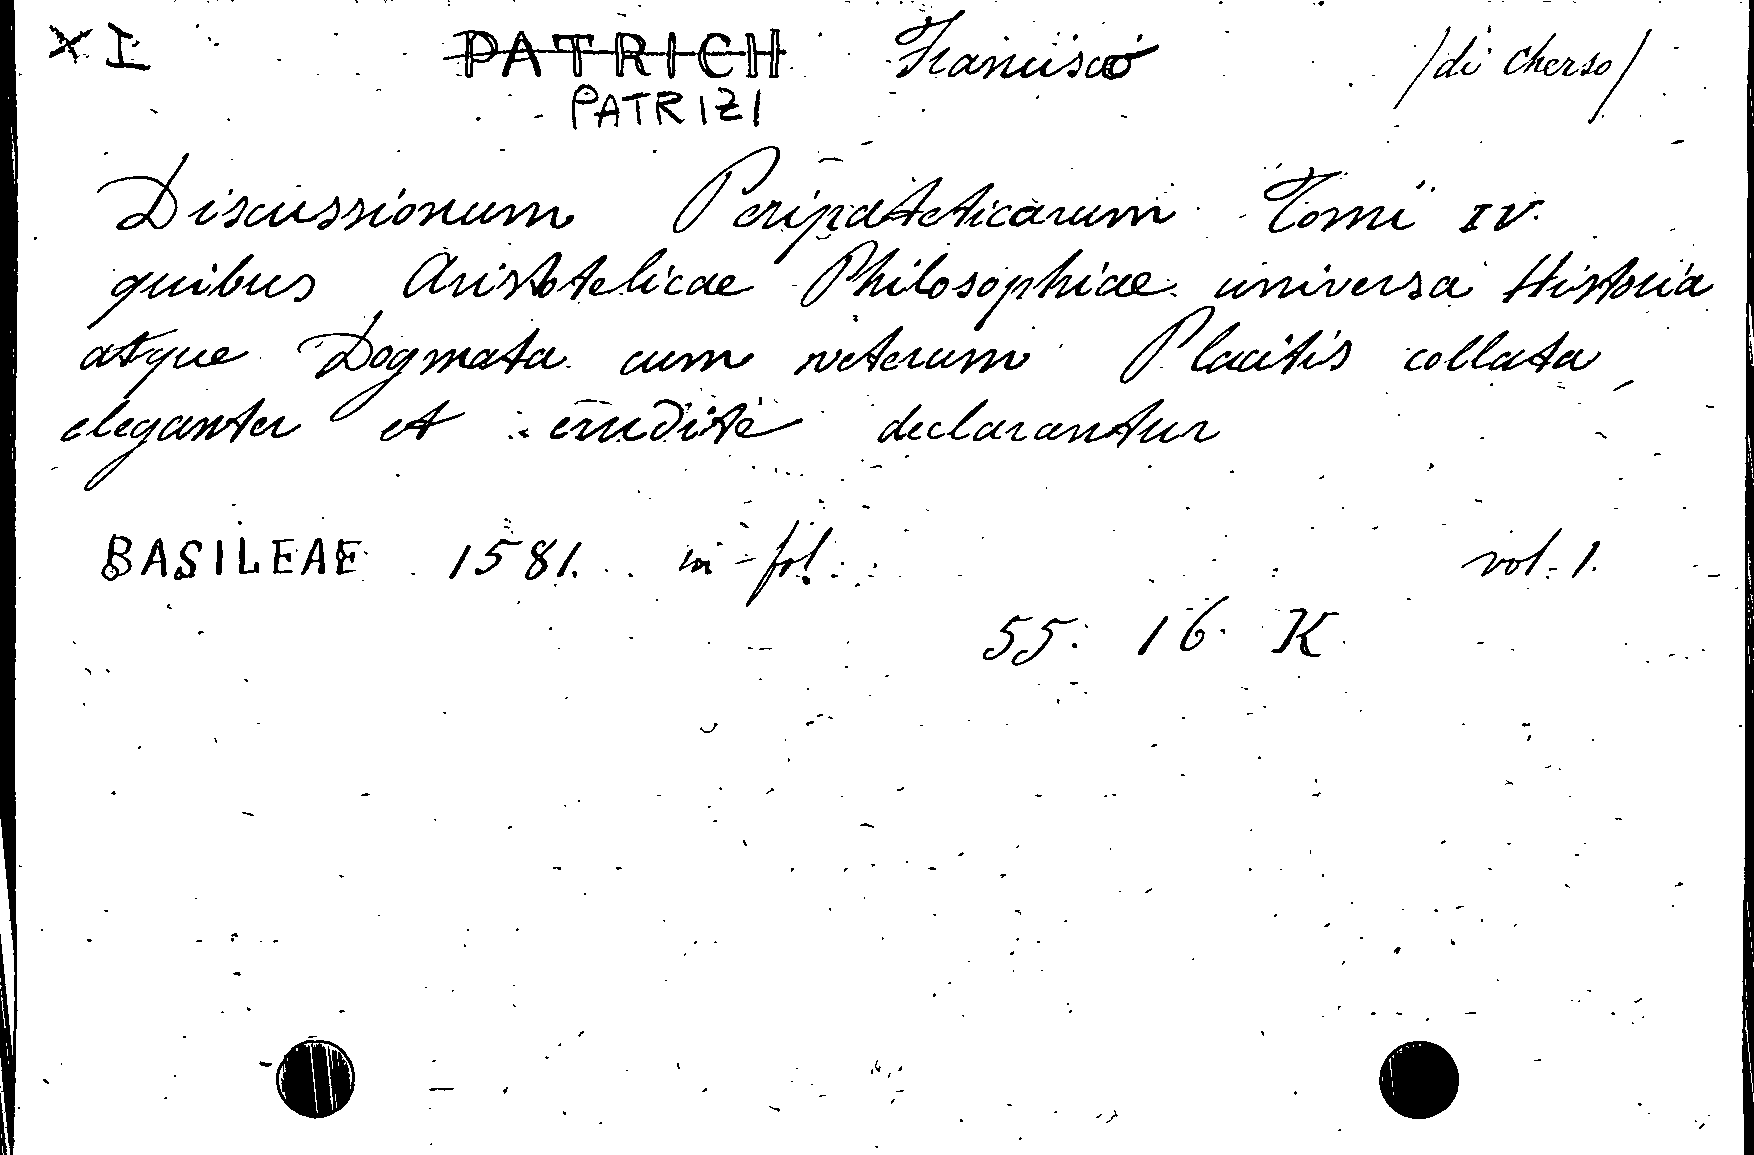 XI PATRICH Francisco /di Cherso/
PATRIZI
Discussionum Peripateticarum Tomi IV.
quibus Aristotelicae Philosophiae universa Historia
atque Dogmata cum veterum Placitis collata,
eleganter et erudite declarantur
BASILEAE 1581. in-fol. vol. 1.
55. 16. K